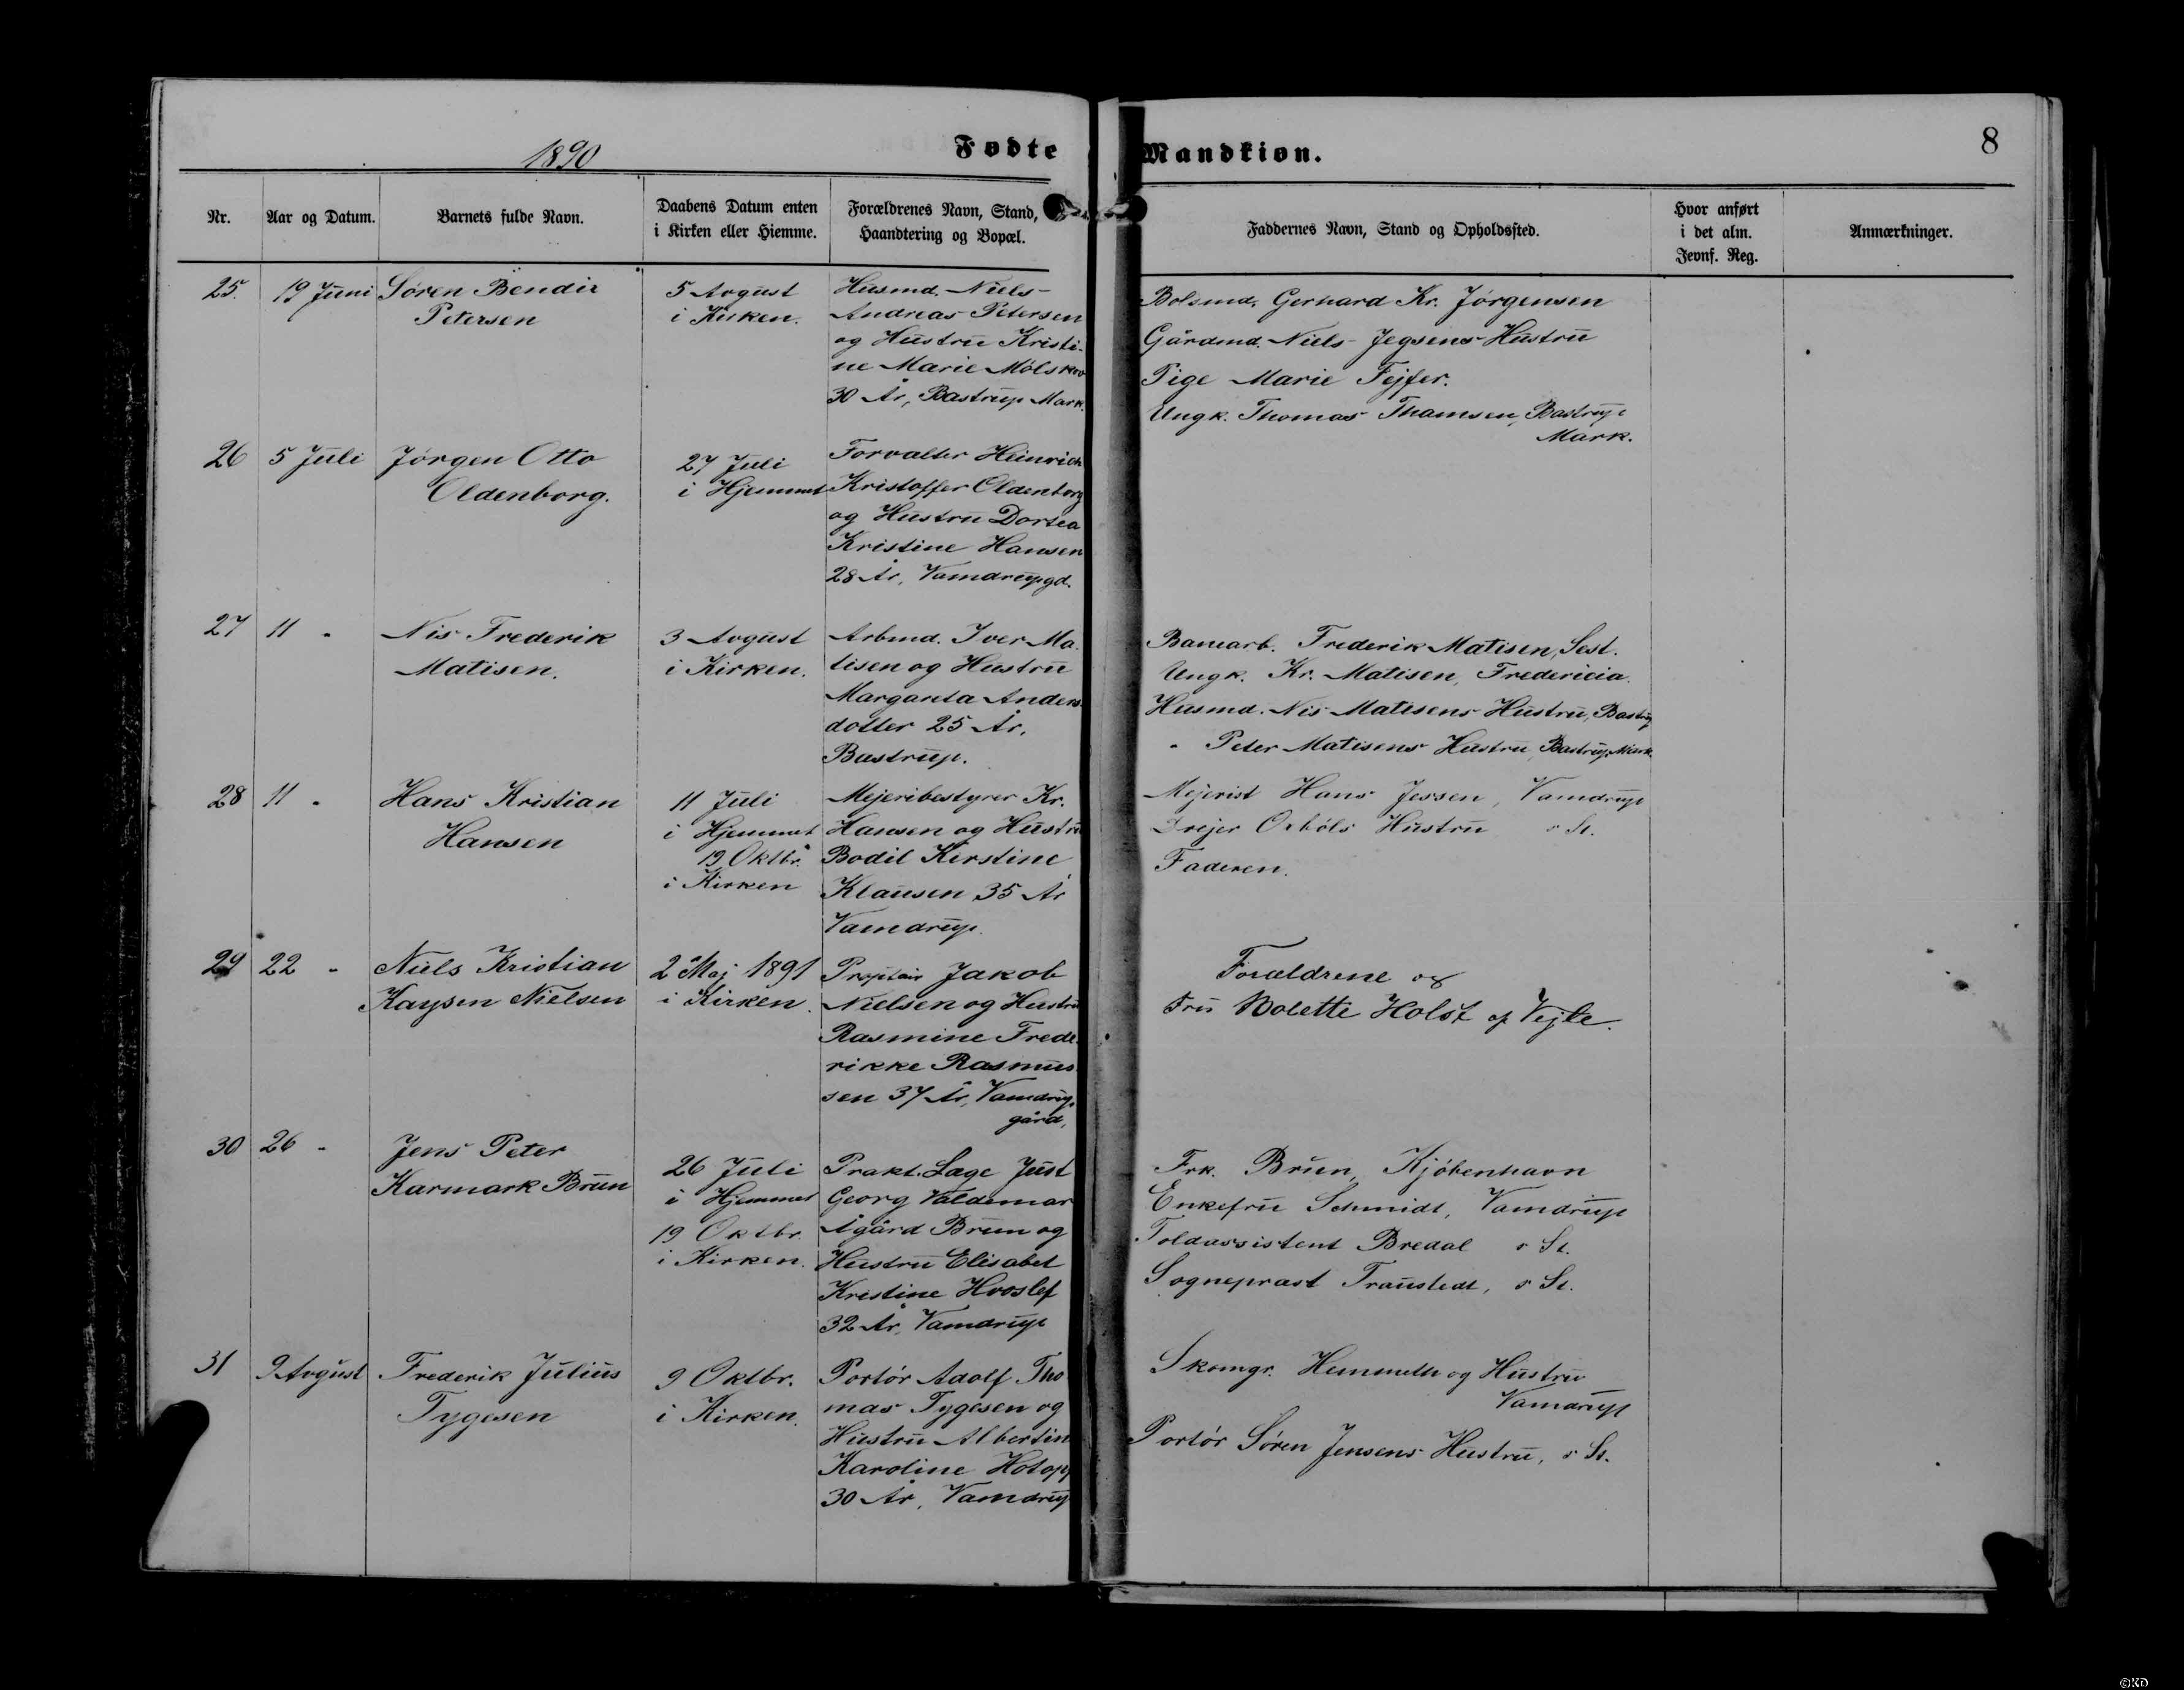 1890
Fødte
Mandkiøn.
8
Nr.
Aar og Datum.
Barnets fulde Navn.
Daabens Datum enten
i Kirken eller Hiemme.
Forældrenes Navn, Stand,
Haandtering og Bopæl.
Faddernes Navn, Stand og Opholdssted.
Hvor anført
i det alm.
Jevnf. Reg.
Anmærkninger.
25.
19 Juni
Søren Bendix
Petersen
5 Avgust
i Kirken.
Husmd. Niels
Andreas Petersen
og Hustru Kristi-
ne Marie Mølskov
30 År, Bastrup Mark.
Bolsmd. Gerhard Kr. Jørgensen
Gårdmd. Niels Jegsens Hustru
Pige Marie Fejfer.
Ungk. Thomas Thamsen, Bastrup
Mark.
26
5 Juli
Jørgen Otto
Oldenborg.
27 Juli
i Hjemmet
Forvalter Heinrich
Kristoffer Oldenborg
og Hustru Dortea
Kristine Hansen
28 År, Vamdrupgd.
27
11 "
Nis Frederik
Matisen.
3 Avgust
i Kirken.
Arbmd. Iver Ma-
tisen og Hustru
Margareta Anders
dotter 25 År,
Bastrup.
Banearb. Frederik Matisen, Sest.
Ungk. Kr. Matisen, Fredericia.
Husmd. Nis Matisens Hustru, Bastrup
" Peter Matisens Hustru, Bastrup Mark
28
11 "
Hans Kristian
Hansen
11 Juli
i Hjemmet
19 Oktbr.
i Kirken
Mejeribestyrer Kr.
Hansen og Hustru
Bodil Kirstine
Klausen 35 År
Vamdrup.
Mejerist Hans Jessen, Vamdrup
Drejer Oxbøls Hustru s St.
Faderen.
29
22 "
Niels Kristian
Kaysen Nielsen
2 Maj 1891
i Kirken.
Proptair Jakob
Nielsen og Hustru
Rasmine Frede-
rikke Rasmus-
sen 37 År, Vamdrup-
gård,
Forældrene og
Fru Bolette Holst af Vejle.
30
26 "
Jens Peter
Karmark Brun
26 Juli
i Hjemmet
19 Oktbr.
i Kirken.
Prakt. Læge Just
Georg Valdemar
Ågård Brun og
Hustru Elisabet
Kristine Hvoslef
32 År, Vamdrup
Frk. Brun, Kjøbenhavn
Enkefru Schmidt, Vamdrup
Toldassistent Bredal s St.
Sognepræst Traustedt, s St.
31
9 Avgust
Frederik Julius
Tygesen
9 Oktbr.
i Kirken.
Portør Adolf Tho
mas Tygesen og
Hustru Albertine
Karoline Hotop,
30 År, Vamdrup
Skomgr. og Hustru
Vamdrup
Portør Søren Jensens Hustru, s St.
©KD